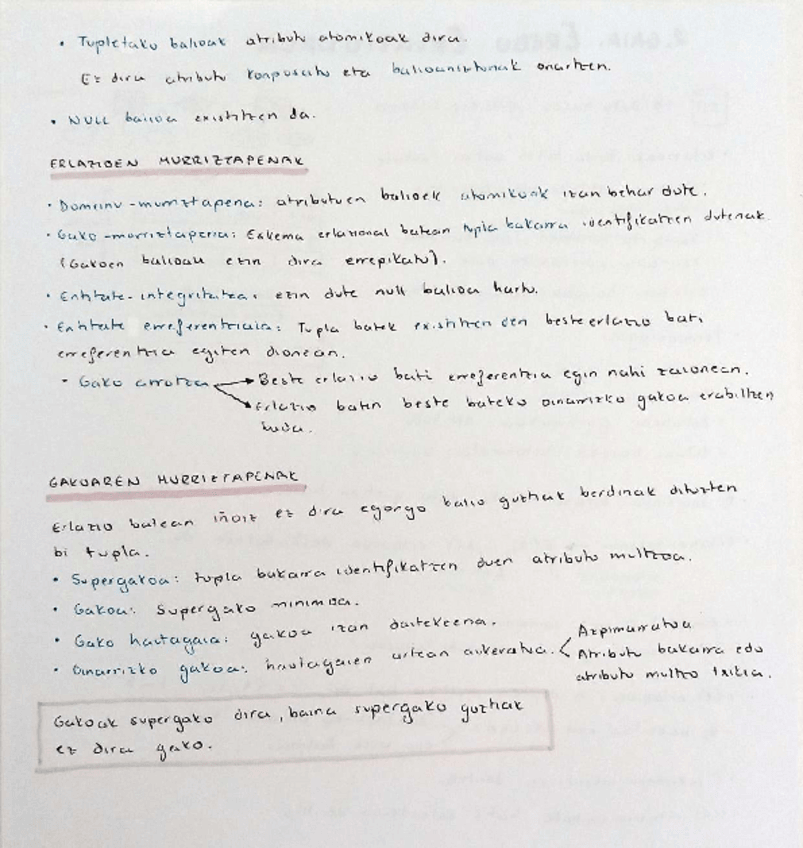 • Tupletako balioak atributu atomikoak dira.
Ez dira atributu konposatu eta balioanitzunak onartzen.
• NULL balioa existitzen da.
ERLAZIOEN MURRIZTAPENAK
• Domeinu-murriztapena: atributuen balioek atomikoak izan behar dute.
• Gako-murriztapena: Eskema erlazional batean tupla bakarra identifikatzen dutenak
(Gakoen balioak ezin dira errepikatu).
• Entitate-integritatea: ezin dute null balioa hartu.
• Entitate erreferentziaia: Tupla batek existitzen den beste erlazio bati
erreferentzia egiten dionean.
• Gako arrotza → Beste erlazio bati erreferentzia egin nahi zaionean.
→ Erlazio batin beste bateko oinarrizko gakoa erabiltzen
bada.
GAKOAREN MURRIZTAPENAK
Erlazio batean iñoiz ez dira egongo balio guztiak berdinak dituzten
bi tupla.
• Supergakoa: tupla bakarra identifikatzen duen atributu multzoa.
• Gakoa: Supergako minimoa.
• Gako hautagaia: gakoa izan daitekeena.
• Oinarrizko gakoa: hautagaien artean aukeratua. < Azpimarratua
Atributu bakarra edo
atributu multzo txikia.
Gakoak supergako dira, baina supergako guztiak
ez dira gako.